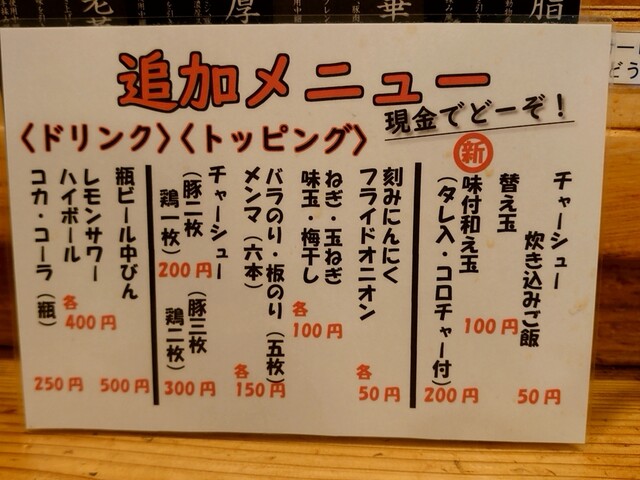 追加メニュー
現金でどーぞ！
〈ドリンク〉〈トッピング〉
チャーシュー
炊き込みご飯
50円
替え玉
100円
新
味付和え玉
(タレ入・コロチャー付)
200円
刻みにんにく
フライドオニオン
各
50円
ねぎ・玉ねぎ
味玉・梅干し
各
100円
バラのり・板のり(五枚)
メンマ(六本)
各
150円
チャーシュー
(豚二枚
鶏一枚)
200円
(豚三枚
鶏二枚)
300円
瓶ビール中びん
500円
レモンサワー
ハイボール
各
400円
コカ・コーラ(瓶)
250円